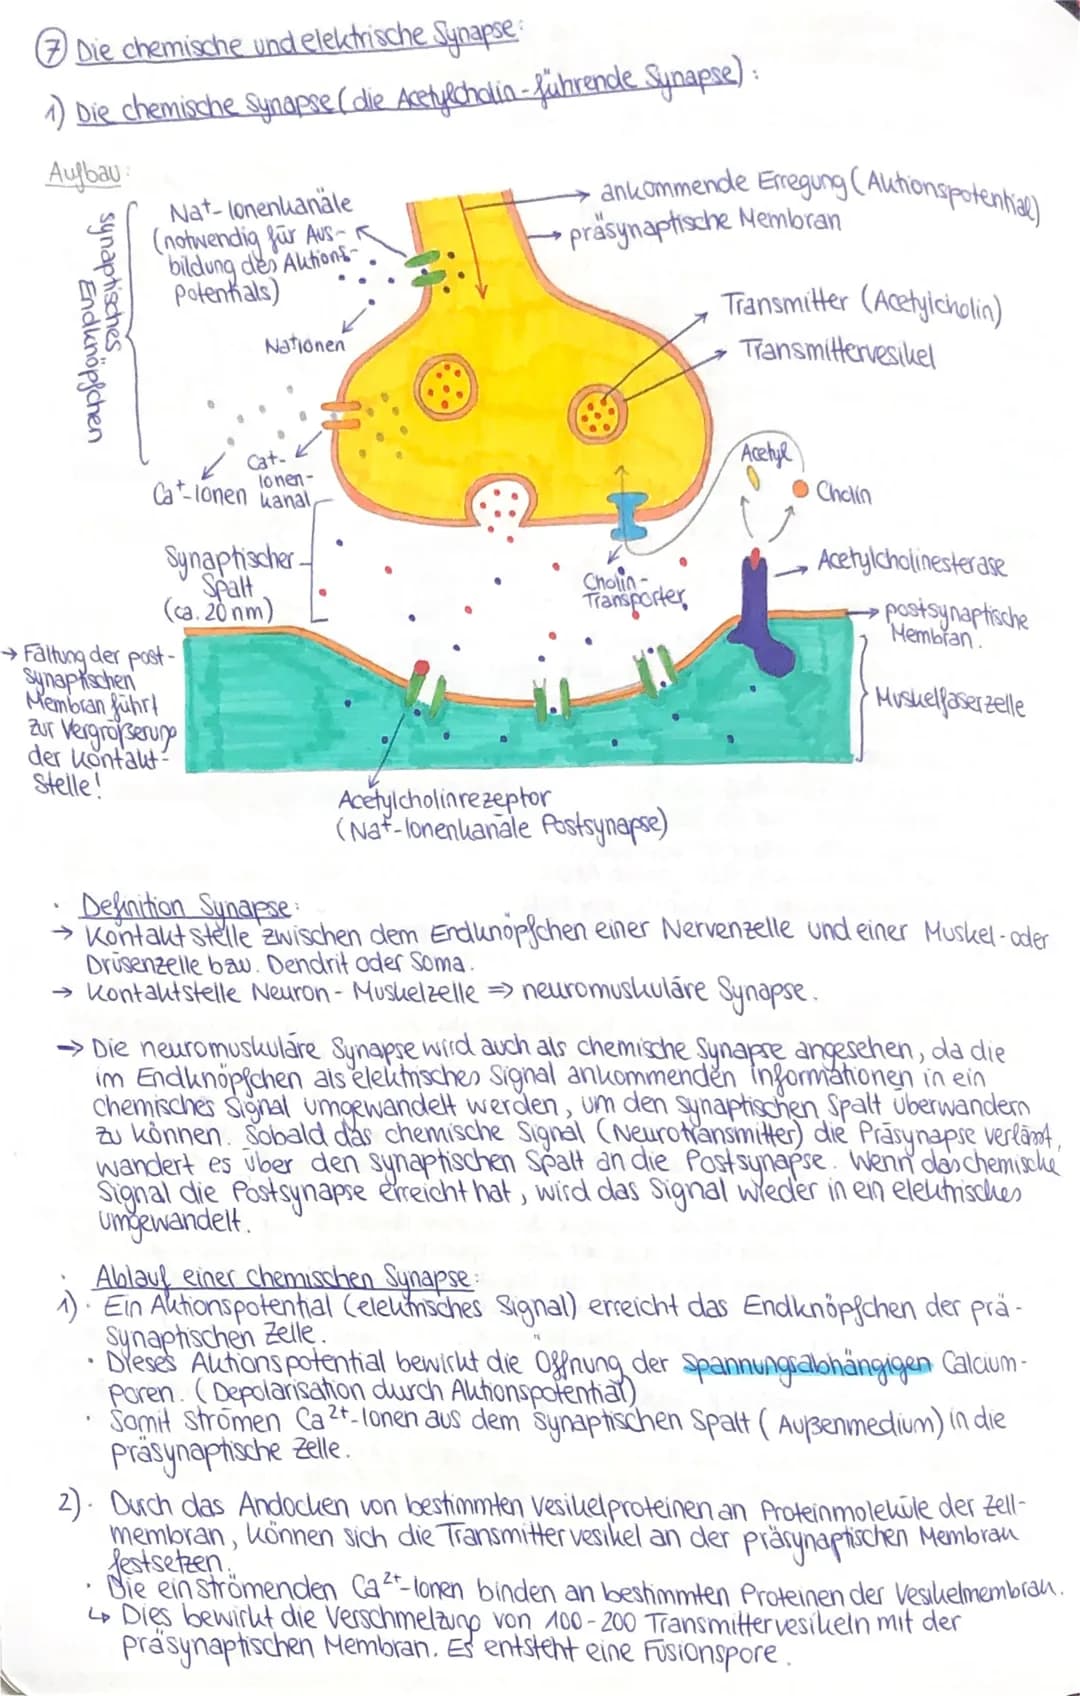 7 Die chemische und elektrische Synapse:
1) Die chemische Synapse (die Acetylcholin-führende Synapse):
Aufbau:
Synaptisches
Endknöpfchen
Na+-Ionenkanäle
(notwendig für Aus-
bildung des Aktions-
potentials)
Nationen
ankommende Erregung (Aktionspotential)
präsynaptische Membran
Transmitter (Acetylcholin)
Transmittervesikel
Ca+-
Ionen-
kanal
Ca+-Ionen
Acetyl
Cholin
Synaptischer
Spalt
(ca. 20 nm)
Cholin-
Transporter
Acetylcholinesterase
postsynaptische
Membran.
Muskelfaserzelle
→ Faltung der post-
synaptischen
Membran führt
zur Vergrößerung
der Kontakt-
stelle!
Acetylcholinrezeptor
(Na+-Ionenkanäle Postsynapse)
· Definition Synapse:
→ Kontaktstelle zwischen dem Endknöpfchen einer Nervenzelle und einer Muskel- oder
Drüsenzelle bzw. Dendrit oder Soma.
→ Kontaktstelle Neuron - Muskelzelle ⇒ neuromuskuläre Synapse.
→ Die neuromuskuläre Synapse wird auch als chemische Synapse angesehen, da die
im Endknöpfchen als elektrisches Signal ankommenden Informationen in ein
chemisches Signal umgewandelt werden, um den synaptischen Spalt überwandern
zu können. Sobald das chemische Signal (Neurotransmitter) die Präsynapse verlässt,
wandert es über den synaptischen Spalt an die Postsynapse. Wenn das chemische
Signal die Postsynapse erreicht hat, wird das Signal wieder in ein elektrisches
umgewandelt.
· Ablauf einer chemischen Synapse:
1) · Ein Aktionspotential (elektrisches Signal) erreicht das Endknöpfchen der prä-
synaptischen Zelle.
· Dieses Aktionspotential bewirkt die Öffnung der spannungsabhängigen Calcium-
poren. (Depolarisation durch Aktionspotential)
· Somit strömen Ca2+-Ionen aus dem synaptischen Spalt (Außenmedium) in die
präsynaptische Zelle.
2) · Durch das Andocken von bestimmten Vesikelproteinen an Proteinmoleküle der Zell-
membran, können sich die Transmittervesikel an der präsynaptischen Membran
festsetzen.
· Die einströmenden Ca2+-Ionen binden an bestimmten Proteinen der Vesikelmembran.
↳ Dies bewirkt die Verschmelzung von 100-200 Transmittervesikeln mit der
präsynaptischen Membran. Es entsteht eine Fusionspore.